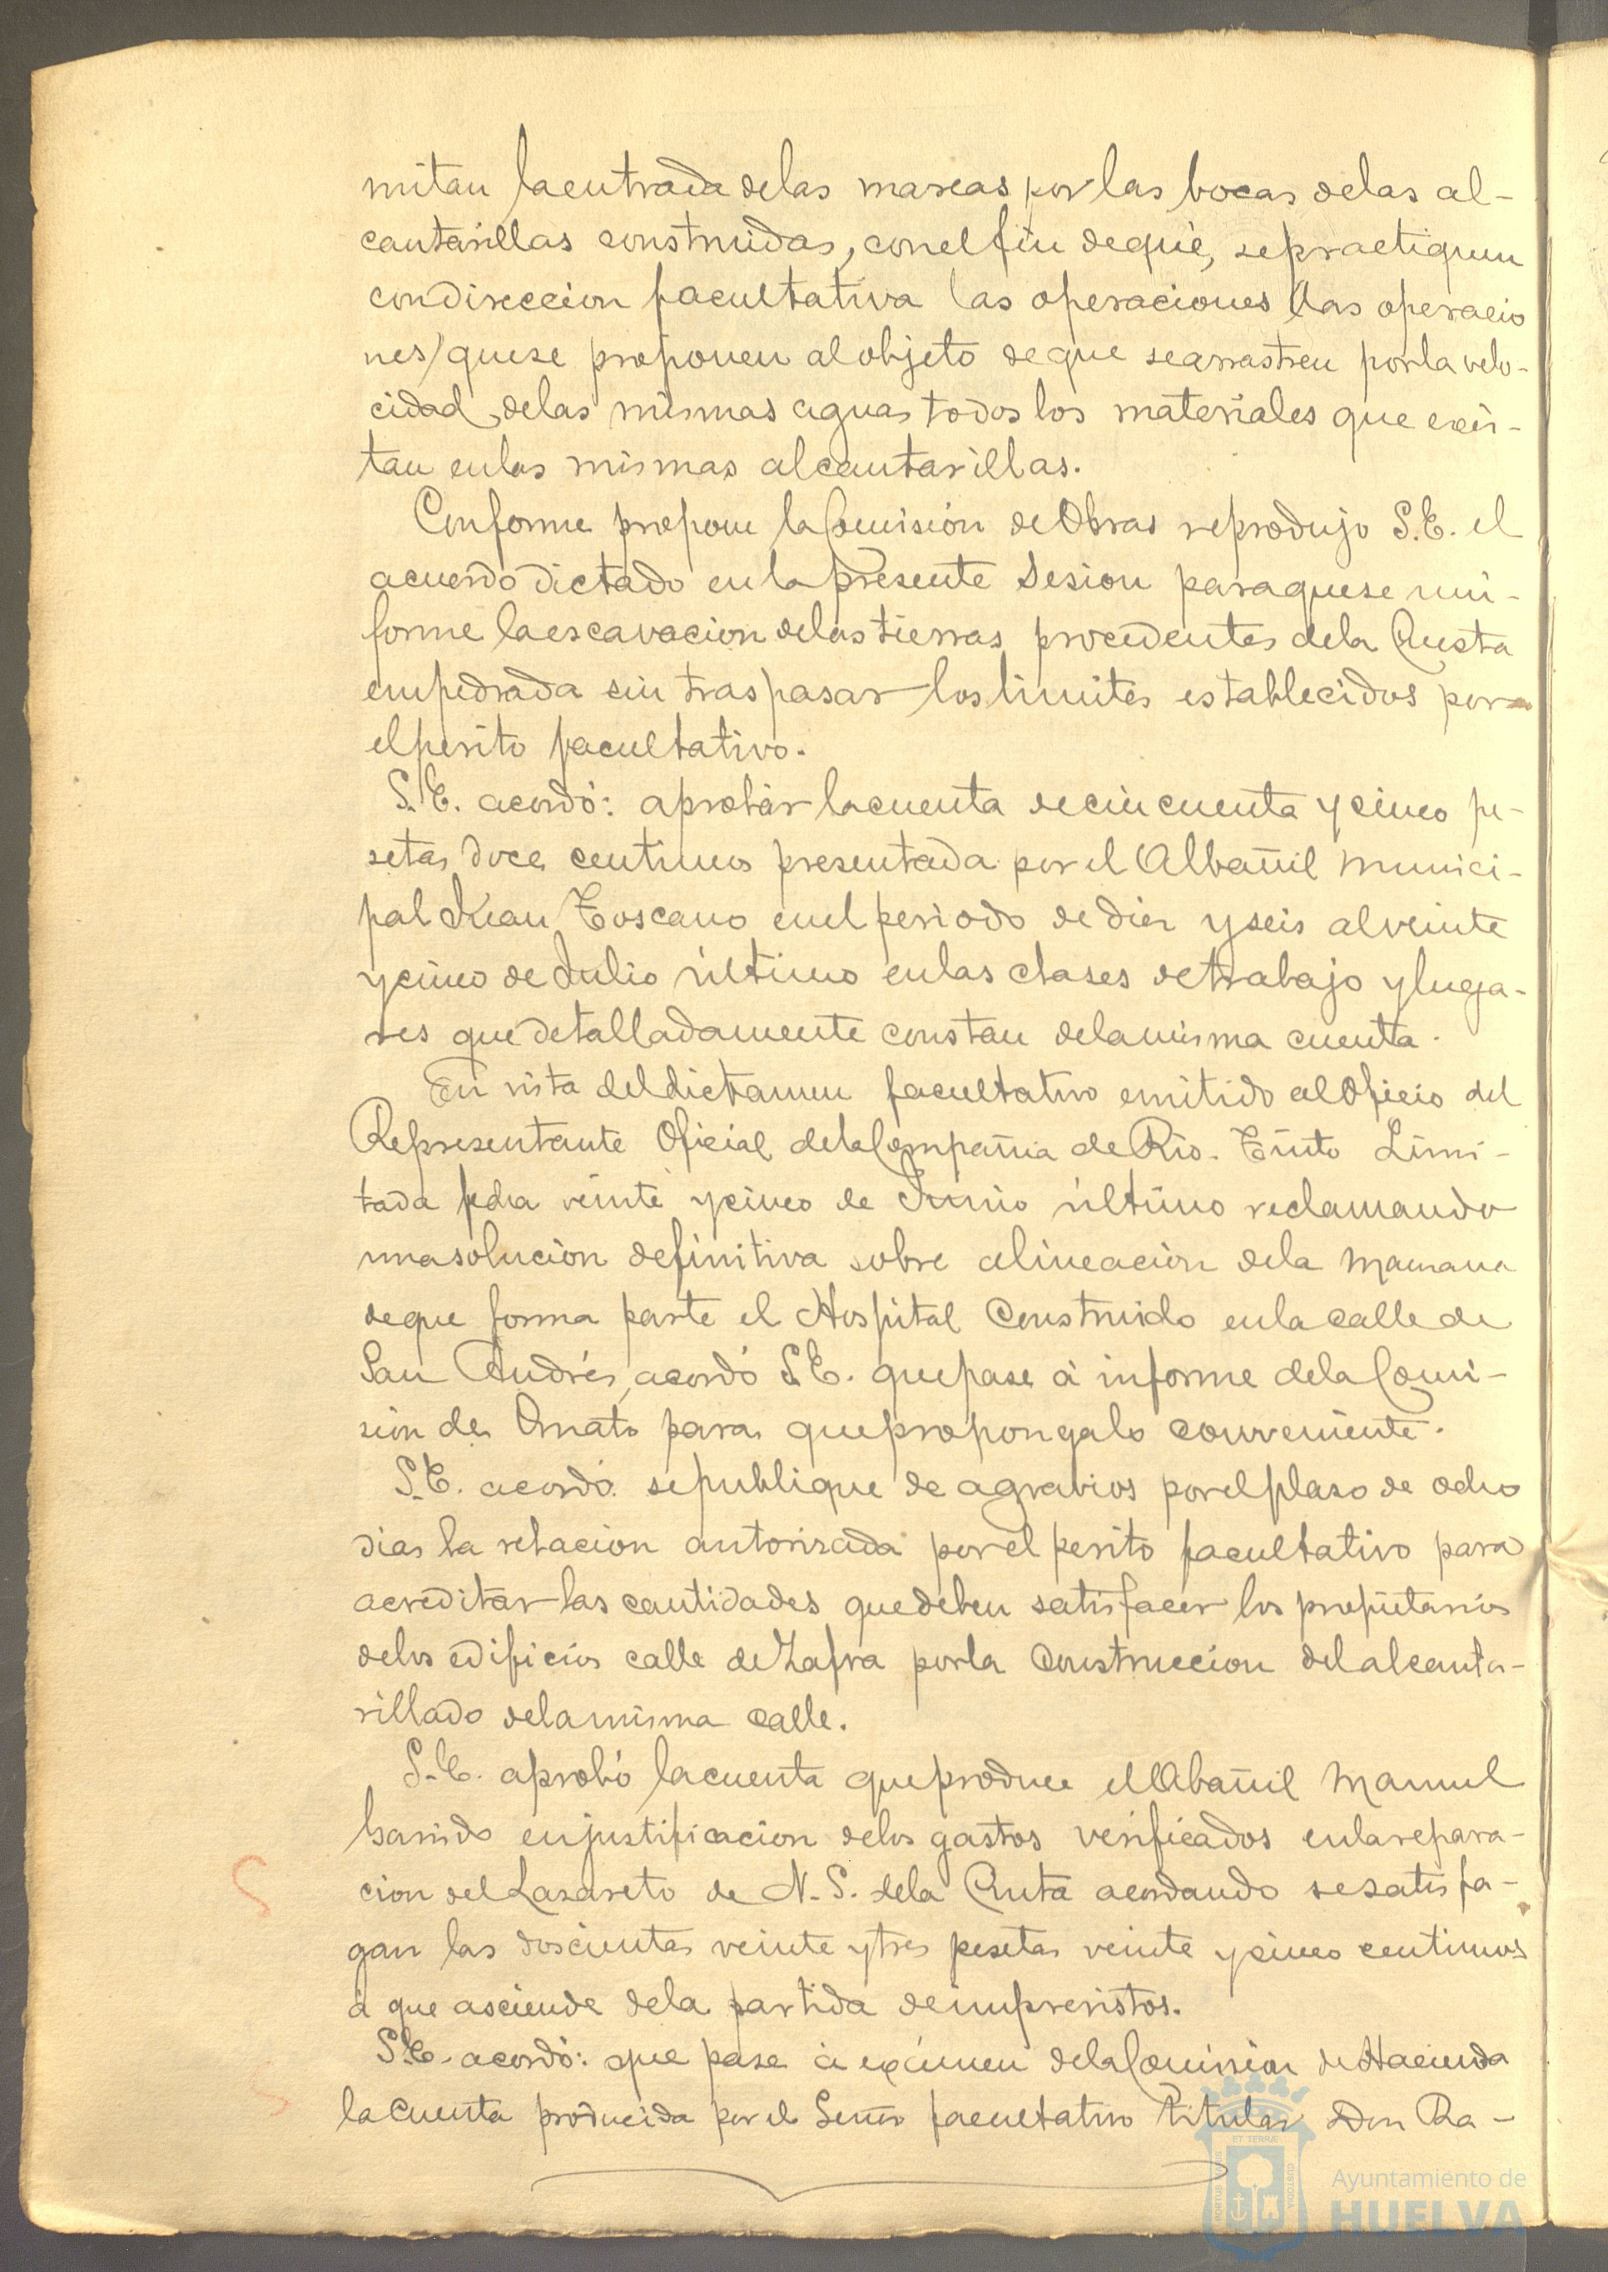 mitan la entrada de las mareas por las bocas de las al-
cantarillas construidas, con el fin de que, se practiquen
con direccion facultativa las operaciones (las operacio
nes) que se proponen al objeto de que se arrastren por la velo-
cidad de las mismas aguas todos los materiales que exis-
tan en las mismas alcantarillas.
Conforme propone la Comisión de Obras reprodujo S.E. el
acuerdo dictado en la presente Sesion para que se uni-
forme la escavacion de las tierras procedentes de la Cuesta
empedrada sin traspasar los limites establecidos por
el perito facultativo.
S.E. acordó: aprobar la cuenta de cincuenta y cinco pe-
setas doce centimos presentada por el Albañil Munici-
pal Juan Toscano en el periodo de diez y seis al veinte
y cinco de Julio último en las clases de trabajo y luga-
res que detalladamente constan de la misma cuenta.
En vista del dictamen facultativo emitido al Oficio del
Representante Oficial de la Compañia de Rio-Tinto Limi-
tada fecha veinte y cinco de Junio último reclamando
una solucion definitiva sobre alineacion de la Manzana
de que forma parte el Hospital Construido en la calle de
San Andrés, acordó S.E. que pase á informe de la Comi-
sion de Ornato para que proponga lo conveniente.
S.E. acordó se publique de agravios por el plazo de ocho
dias la relacion autorizada por el perito facultativo para
acreditar las cantidades que deben satisfacer los propietarios
de los edificios calle de Zafra por la Construccion del alcanta-
rillado de la misma calle.
S.E. aprobó la cuenta que produce el Albañil Manuel
Garrido en justificacion de los gastos verificados en la repara-
cion del Lazareto de N.S. de la Cinta acordando se satisfa-
gan las doscientas veinte y tres pesetas veinte y cinco centimos
á que asciende de la partida de imprevistos.
S.E. acordó: que pase á exámen de la Comision de Hacienda
la Cuenta producida por el Señor facultativo Titular Don Ra-
Ayuntamiento de
HUELVA